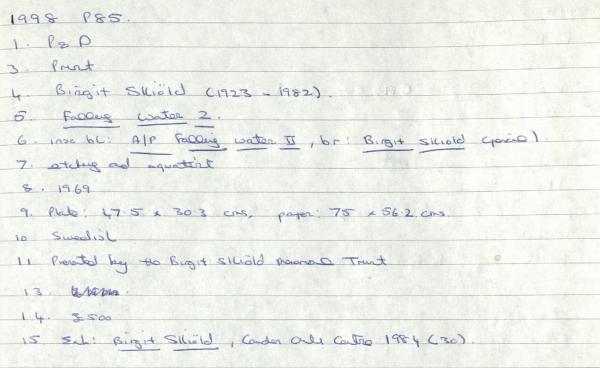 1998 P85.
1. P&D
3. Print
4. Birgit Skiöld (1923 - 1982).
5. Falling Water 2.
6. insc bl: A/P Falling water II, br: Birgit Skiold (pencil).
7. etching and aquatint
8. 1969
9. Plate: 47.5 x 30.3 cms, paper: 75 x 56.2 cms.
10 Swedish
11 Presented by the Birgit Skiöld Memorial Trust
13.
14. £500
15. Exh: Birgit Skiöld, Camden Arts Centre 1984 (30).